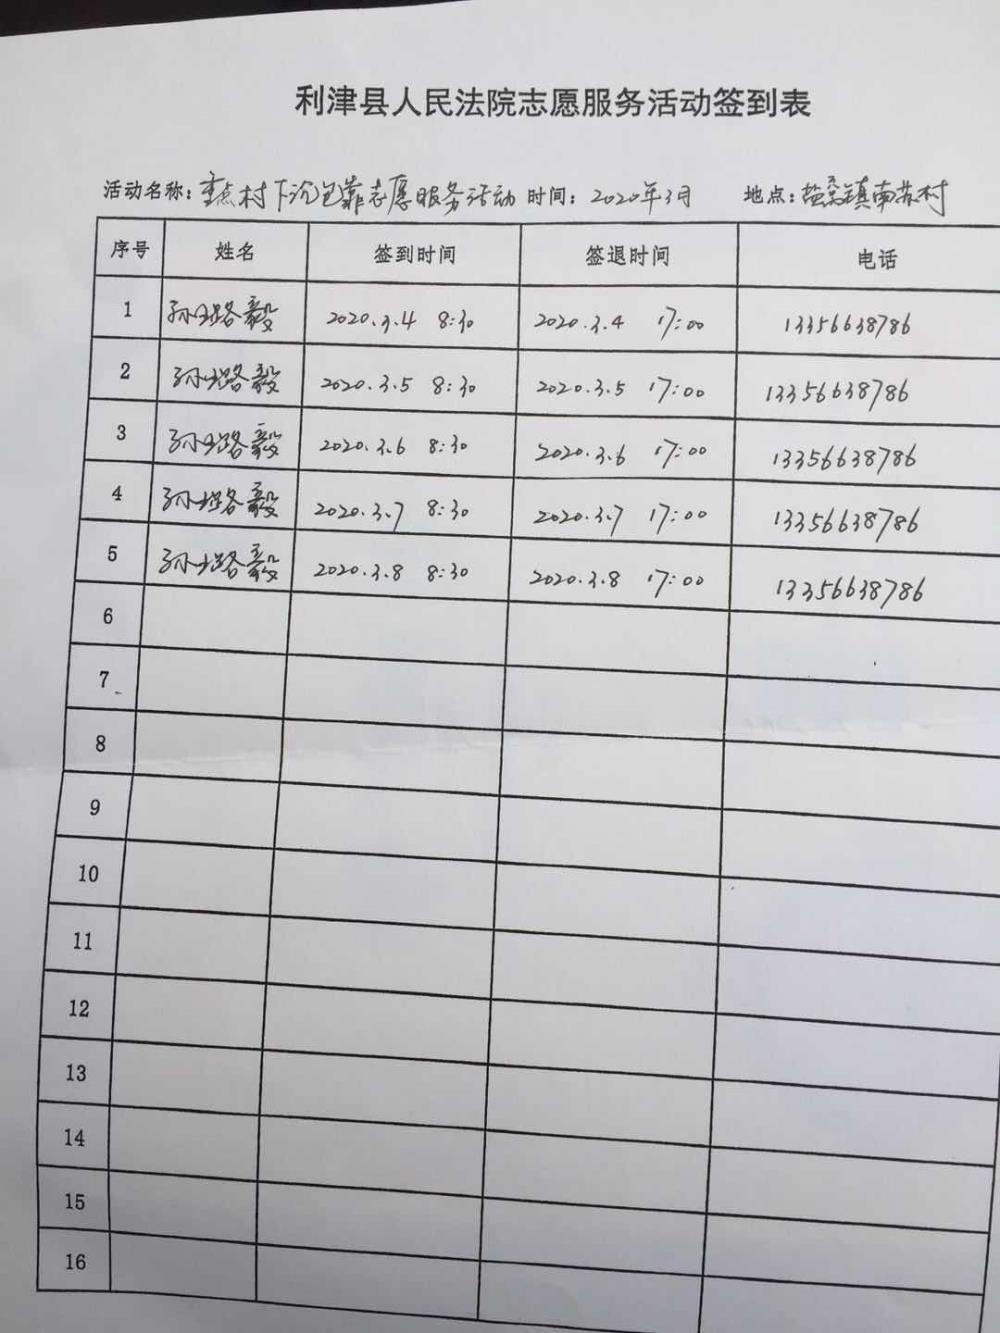 利津县人民法院志愿服务活动签到表
活动名称:重点村下沉包靠志愿服务活动 时间:2020年3月 地点:盐窝镇南苏村
序号 姓名 签到时间 签退时间 电话
1 孙路毅 2020.3.4 8:30 2020.3.4 17:00 13356638786
2 孙路毅 2020.3.5 8:30 2020.3.5 17:00 13356638786
3 孙路毅 2020.3.6 8:30 2020.3.6 17:00 13356638786
4 孙路毅 2020.3.7 8:30 2020.3.7 17:00 13356638786
5 孙路毅 2020.3.8 8:30 2020.3.8 17:00 13356638786
6
7
8
9
10
11
12
13
14
15
16